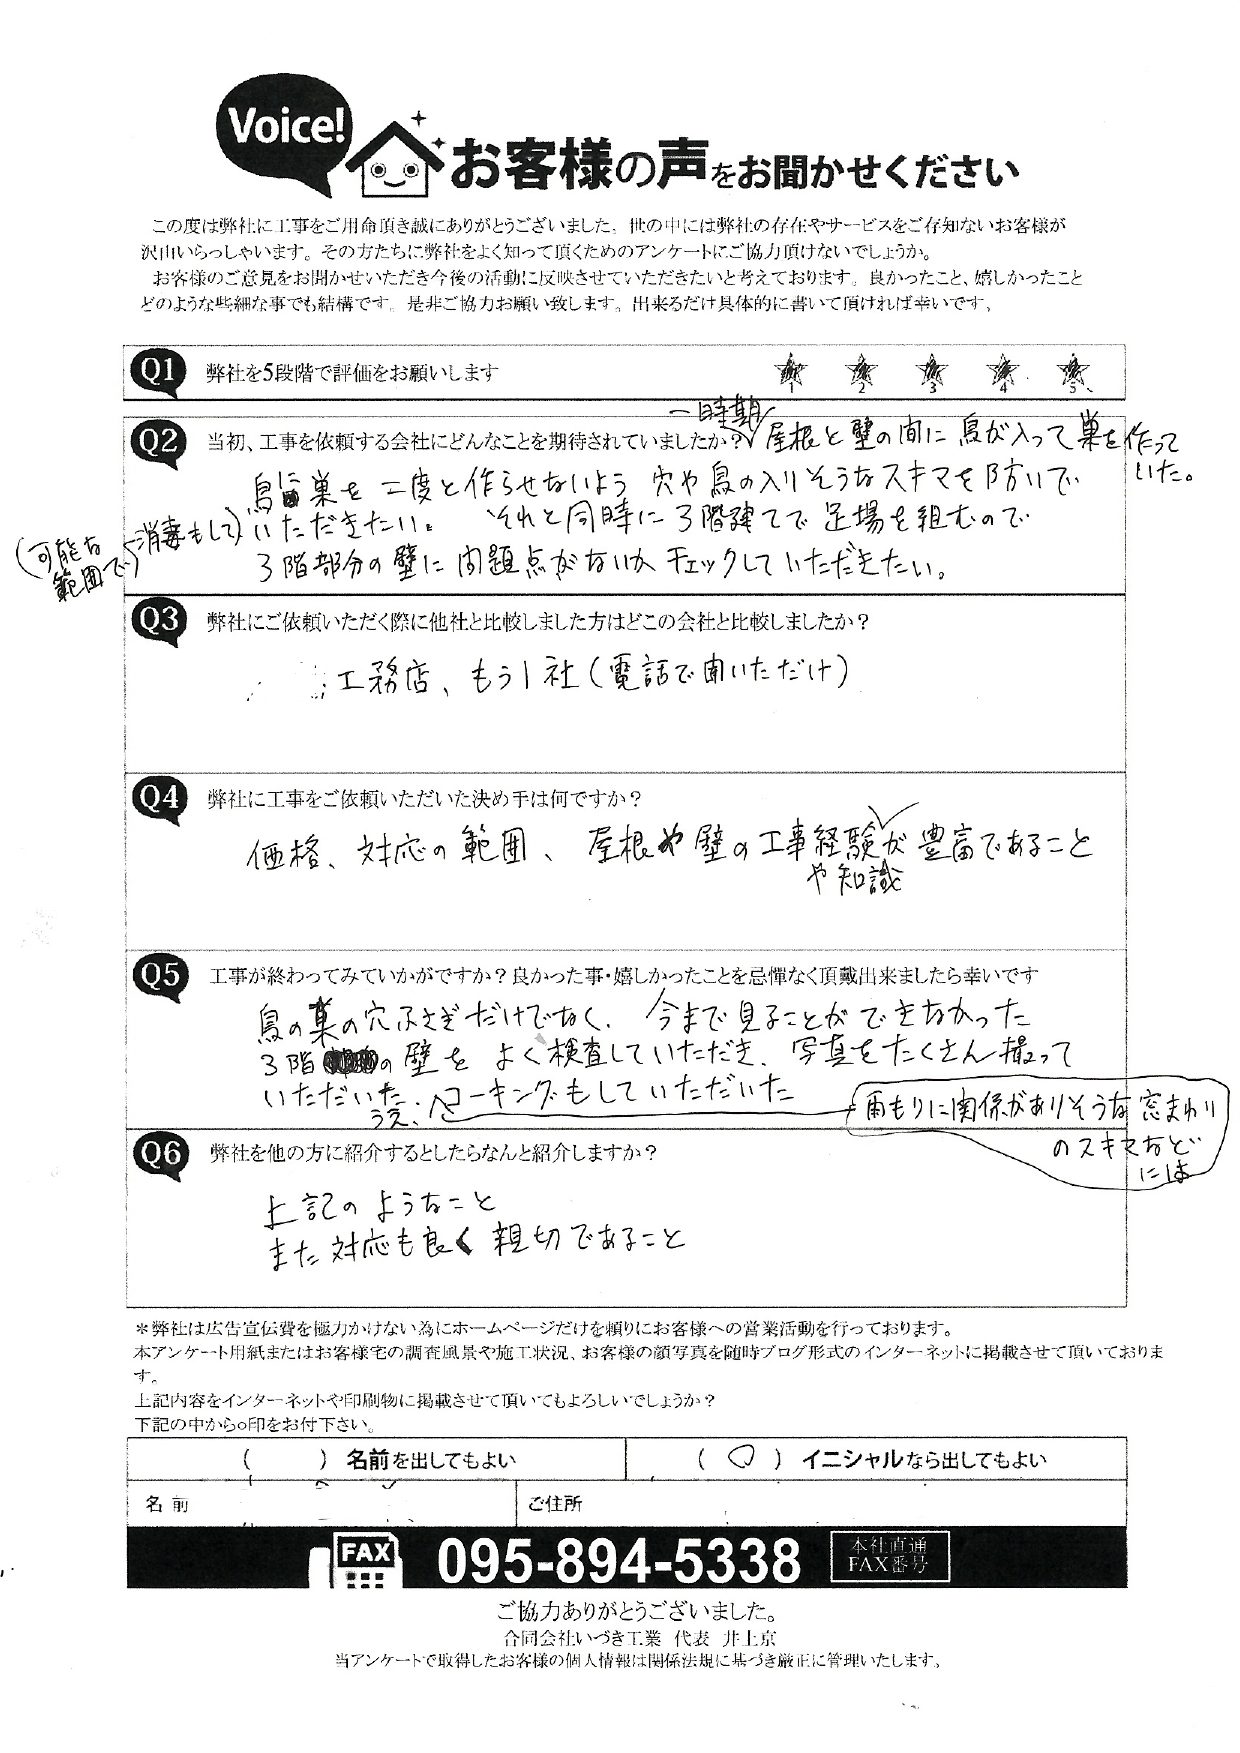 Voice!
お客様の声をお聞かせください
この度は弊社に工事をご用命頂き誠にありがとうございました。世の中には弊社の存在やサービスをご存知ないお客様が
沢山いらっしゃいます。その方たちに弊社をよく知って頂くためのアンケートにご協力頂けないでしょうか。
お客様のご意見をお聞かせいただき今後の活動に反映させていただきたいと考えております。良かったこと、嬉しかったこと
どのような些細な事でも結構です。是非ご協力お願い致します。出来るだけ具体的に書いて頂ければ幸いです。
Q1 弊社を5段階で評価をお願いします
1 2 3 4 5
Q2 当初、工事を依頼する会社にどんなことを期待されていましたか?
一時期
屋根と壁の間に鳥が入って巣を作って
いた。
鳥に巣を二度と作らせないよう穴や鳥の入りそうなスキマを防いで
いただきたい。それと同時に3階建てで足場を組むので
(可能な
範囲で
消毒もして)
3階部分の壁に問題点がないかチェックしていただきたい。
Q3 弊社にご依頼いただく際に他社と比較しました方はどこの会社と比較しましたか?
工務店、もう1社(電話で聞いただけ)
Q4 弊社に工事をご依頼いただいた決め手は何ですか?
価格、対応の範囲、屋根や壁の工事経験が豊富であること
や知識
Q5 工事が終わってみていかがですか?良かった事・嬉しかったことを忌憚なく頂戴出来ましたら幸いです
鳥の巣の穴ふさぎだけでなく、今まで見ることができなかった
3階の壁をよく検査していただき、写真をたくさん撮って
いただいた
うえ、
コーキングもしていただいた
雨もりに関係がありそうな窓まわり
のスキマなど
には
Q6 弊社を他の方に紹介するとしたらなんと紹介しますか?
上記のようなこと
また対応も良く親切であること
*弊社は広告宣伝費を極力かけない為にホームページだけを頼りにお客様への営業活動を行っております。
本アンケート用紙またはお客様宅の調査風景や施工状況、お客様の顔写真を随時ブログ形式のインターネットに掲載させて頂いておりま
す。
上記内容をインターネットや印刷物に掲載させて頂いてもよろしいでしょうか?
下記の中から○印をお付下さい。
( ) 名前を出してもよい
(○) イニシャルなら出してもよい
名前
ご住所
FAX 095-894-5338 本社直通
FAX番号
ご協力ありがとうございました。
合同会社いづき工業 代表 井上京
当アンケートで取得したお客様の個人情報は関係法規に基づき厳正に管理いたします。